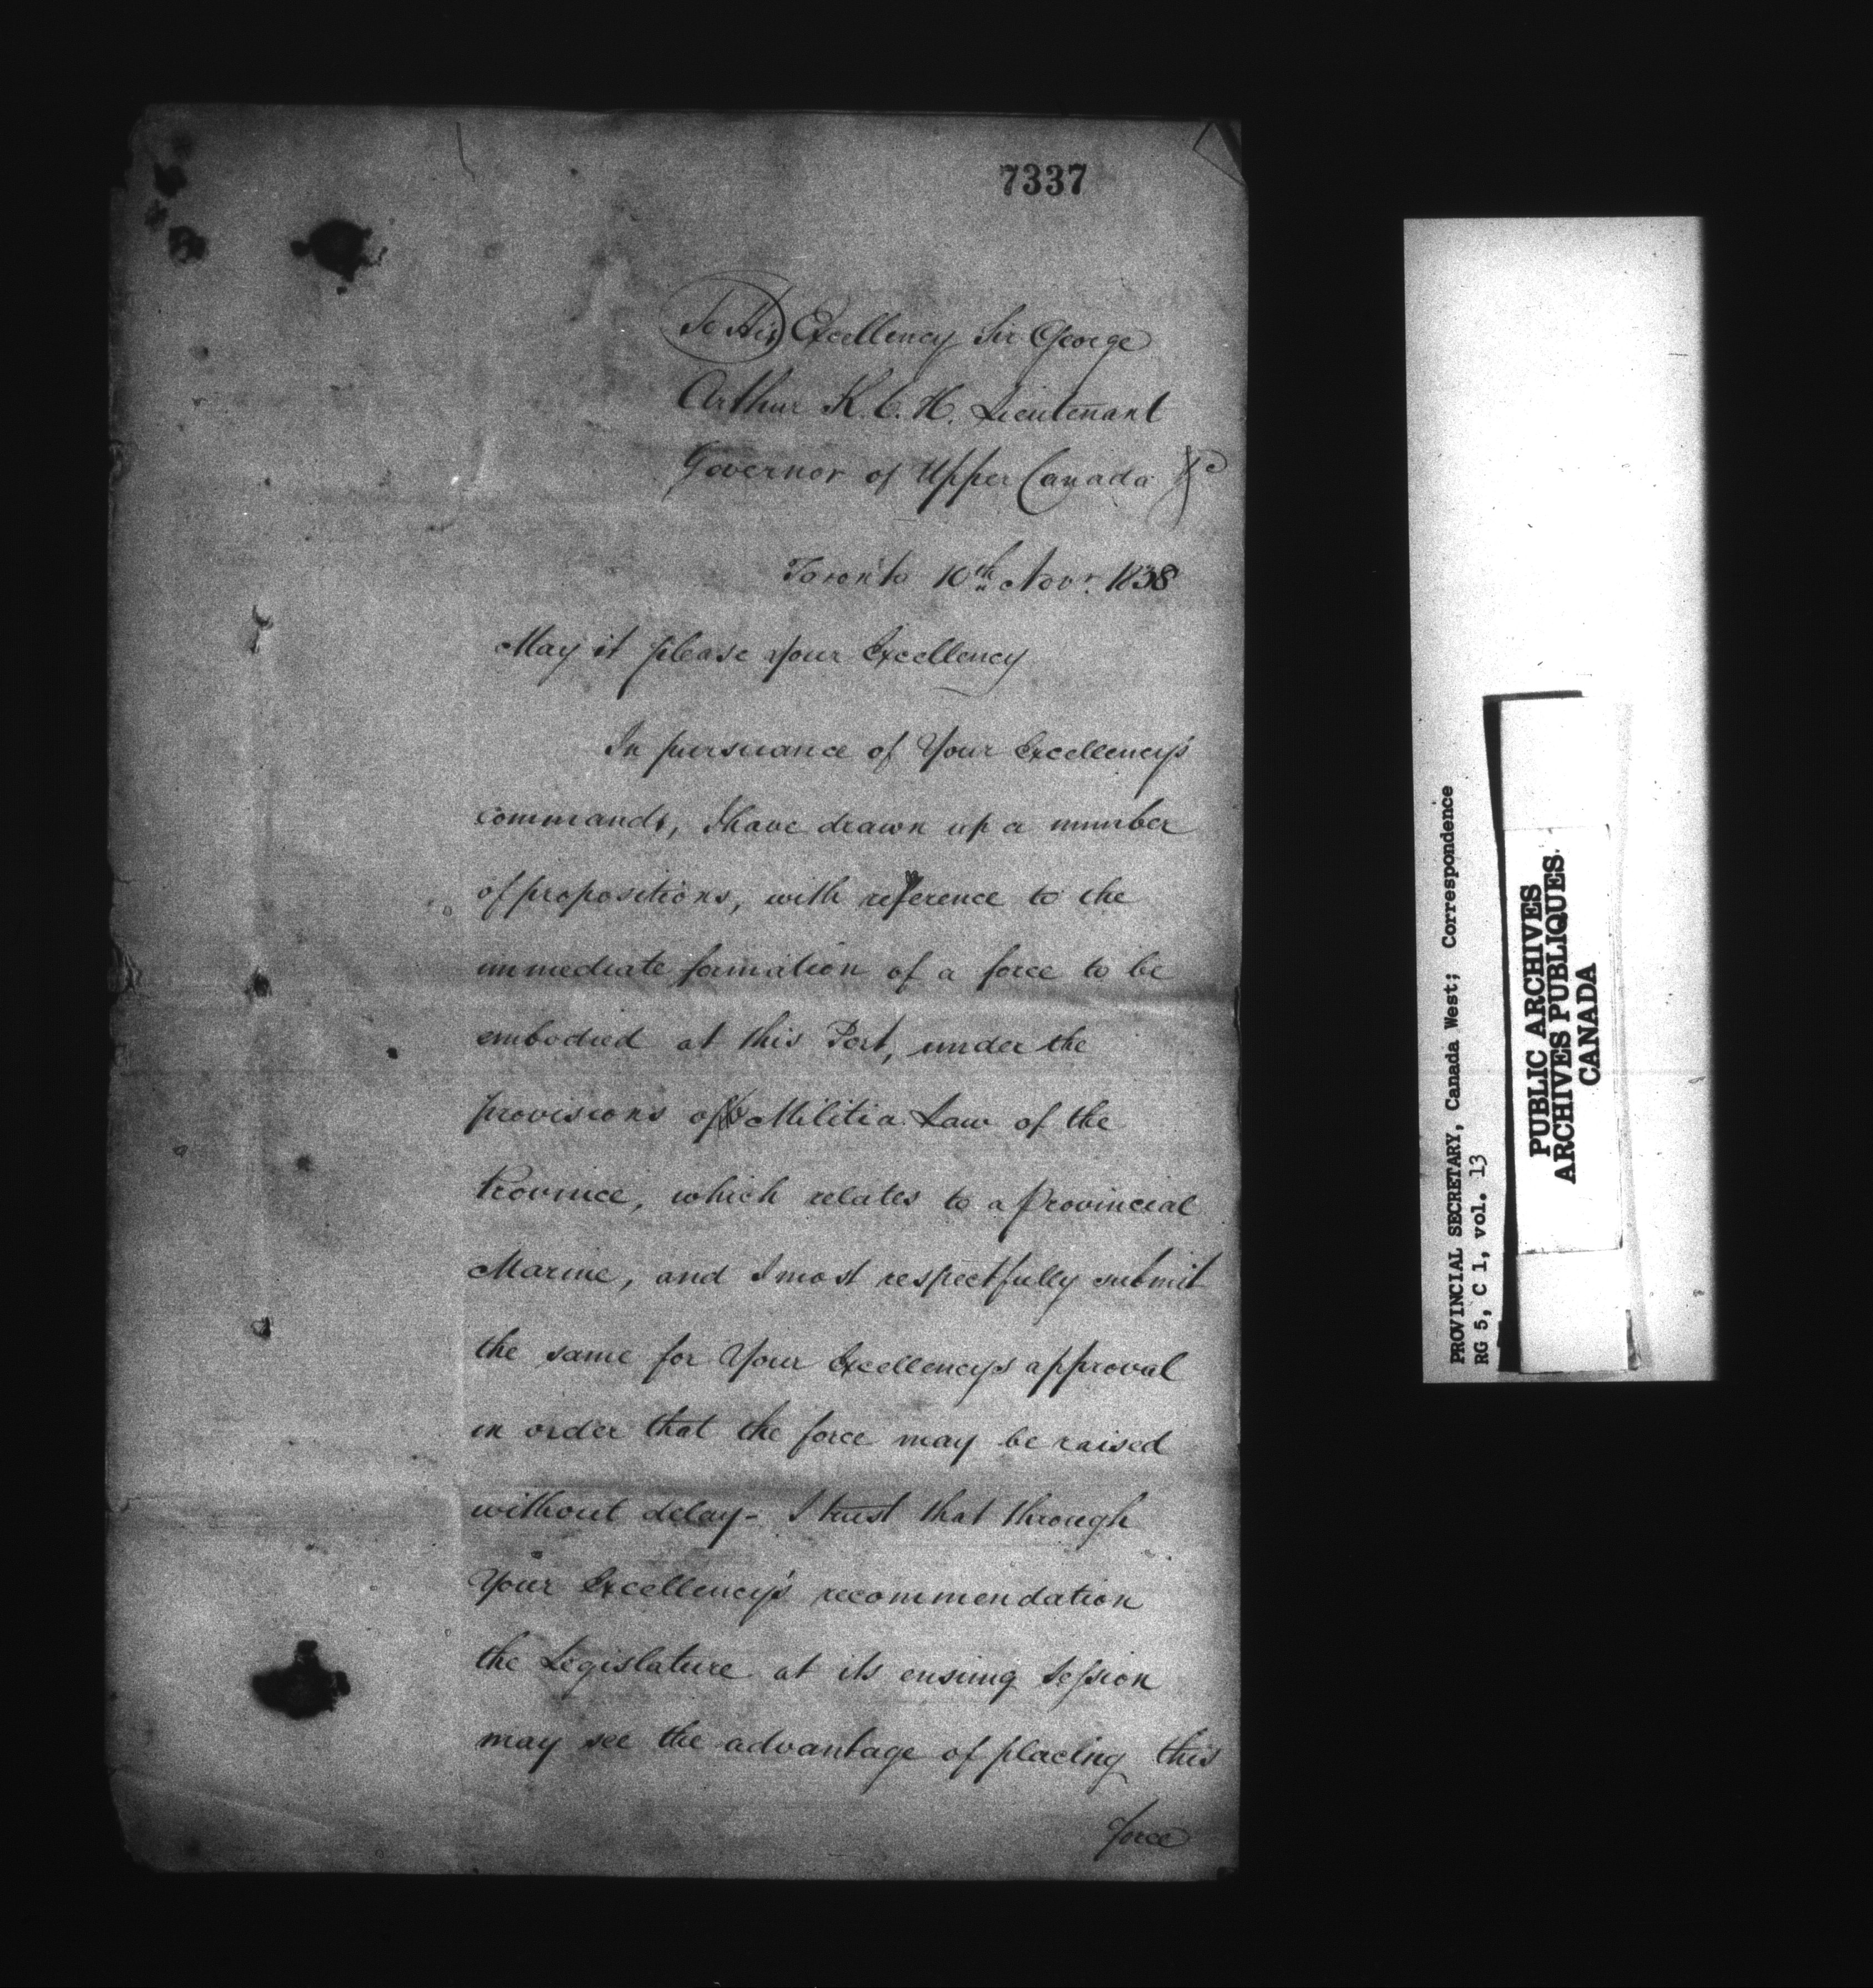 7337
To His Excellency Sir George
Arthur K. C. H. Lieutenant
Governor of Upper Canada &c
Toronto 10th Novr. 1838
May it please Your Excellency
In pursuance of Your Excellency's
commands, I have drawn up a number
of propositions, with reference to the
immediate formation of a force to be
embodied at this Port, under the
provisions of Militia Law of the
Province, which relates to a Provincial
Marine, and I most respectfully submit
the same for Your Excellency's approval
in order that the force may be raised
without delay - I trust that through
Your Excellency's recommendation
the Legislature at its ensuing Session
may see the advantage of placing this
force
PROVINCIAL SECRETARY, Canada West; Correspondence
RG 5, C 1, vol. 13
PUBLIC ARCHIVES
ARCHIVES PUBLIQUES
CANADA